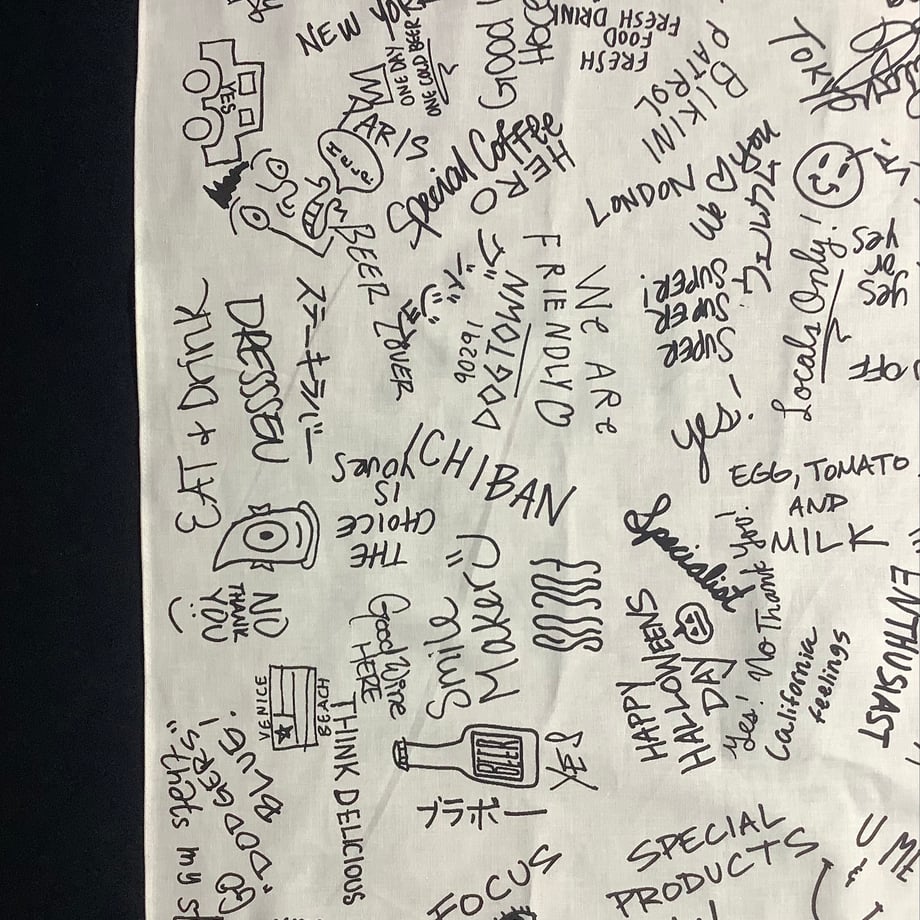 NEW YORK
ONE DAY
ONE COLD BEER
FRESH
FOOD
FRESH DRINK
BIKINI
PATROL
TOKYO
YES
PARIS
House
Special Coffee
HERO
LONDON
We ♡ you
BEER
LOVER
DOGTOWN
90291
WE ARE
FRIENDLY
SUPER
SUPER
SUPER!
Locals Only!
yes
or
yes
OFF
EAT + DRINK
DRESSSEN
ステーキラバー
THE
CHOICE
IS
YOURS
ICHIBAN
yes!
EGG, TOMATO
AND
MILK
Specialist
NO
THANK
YOU
Good Wine
HERE
Smile
Maker
HAPPY
HALLOWEENS
DAY
Yes! No Thank You!
California
feelings
ENTHUSIAST
VENICE
BEACH
THINK DELICIOUS
BEER
ブラボー
GO
"DODGERS"
BLUE!
"that's my
FOCUS
SPECIAL
PRODUCTS